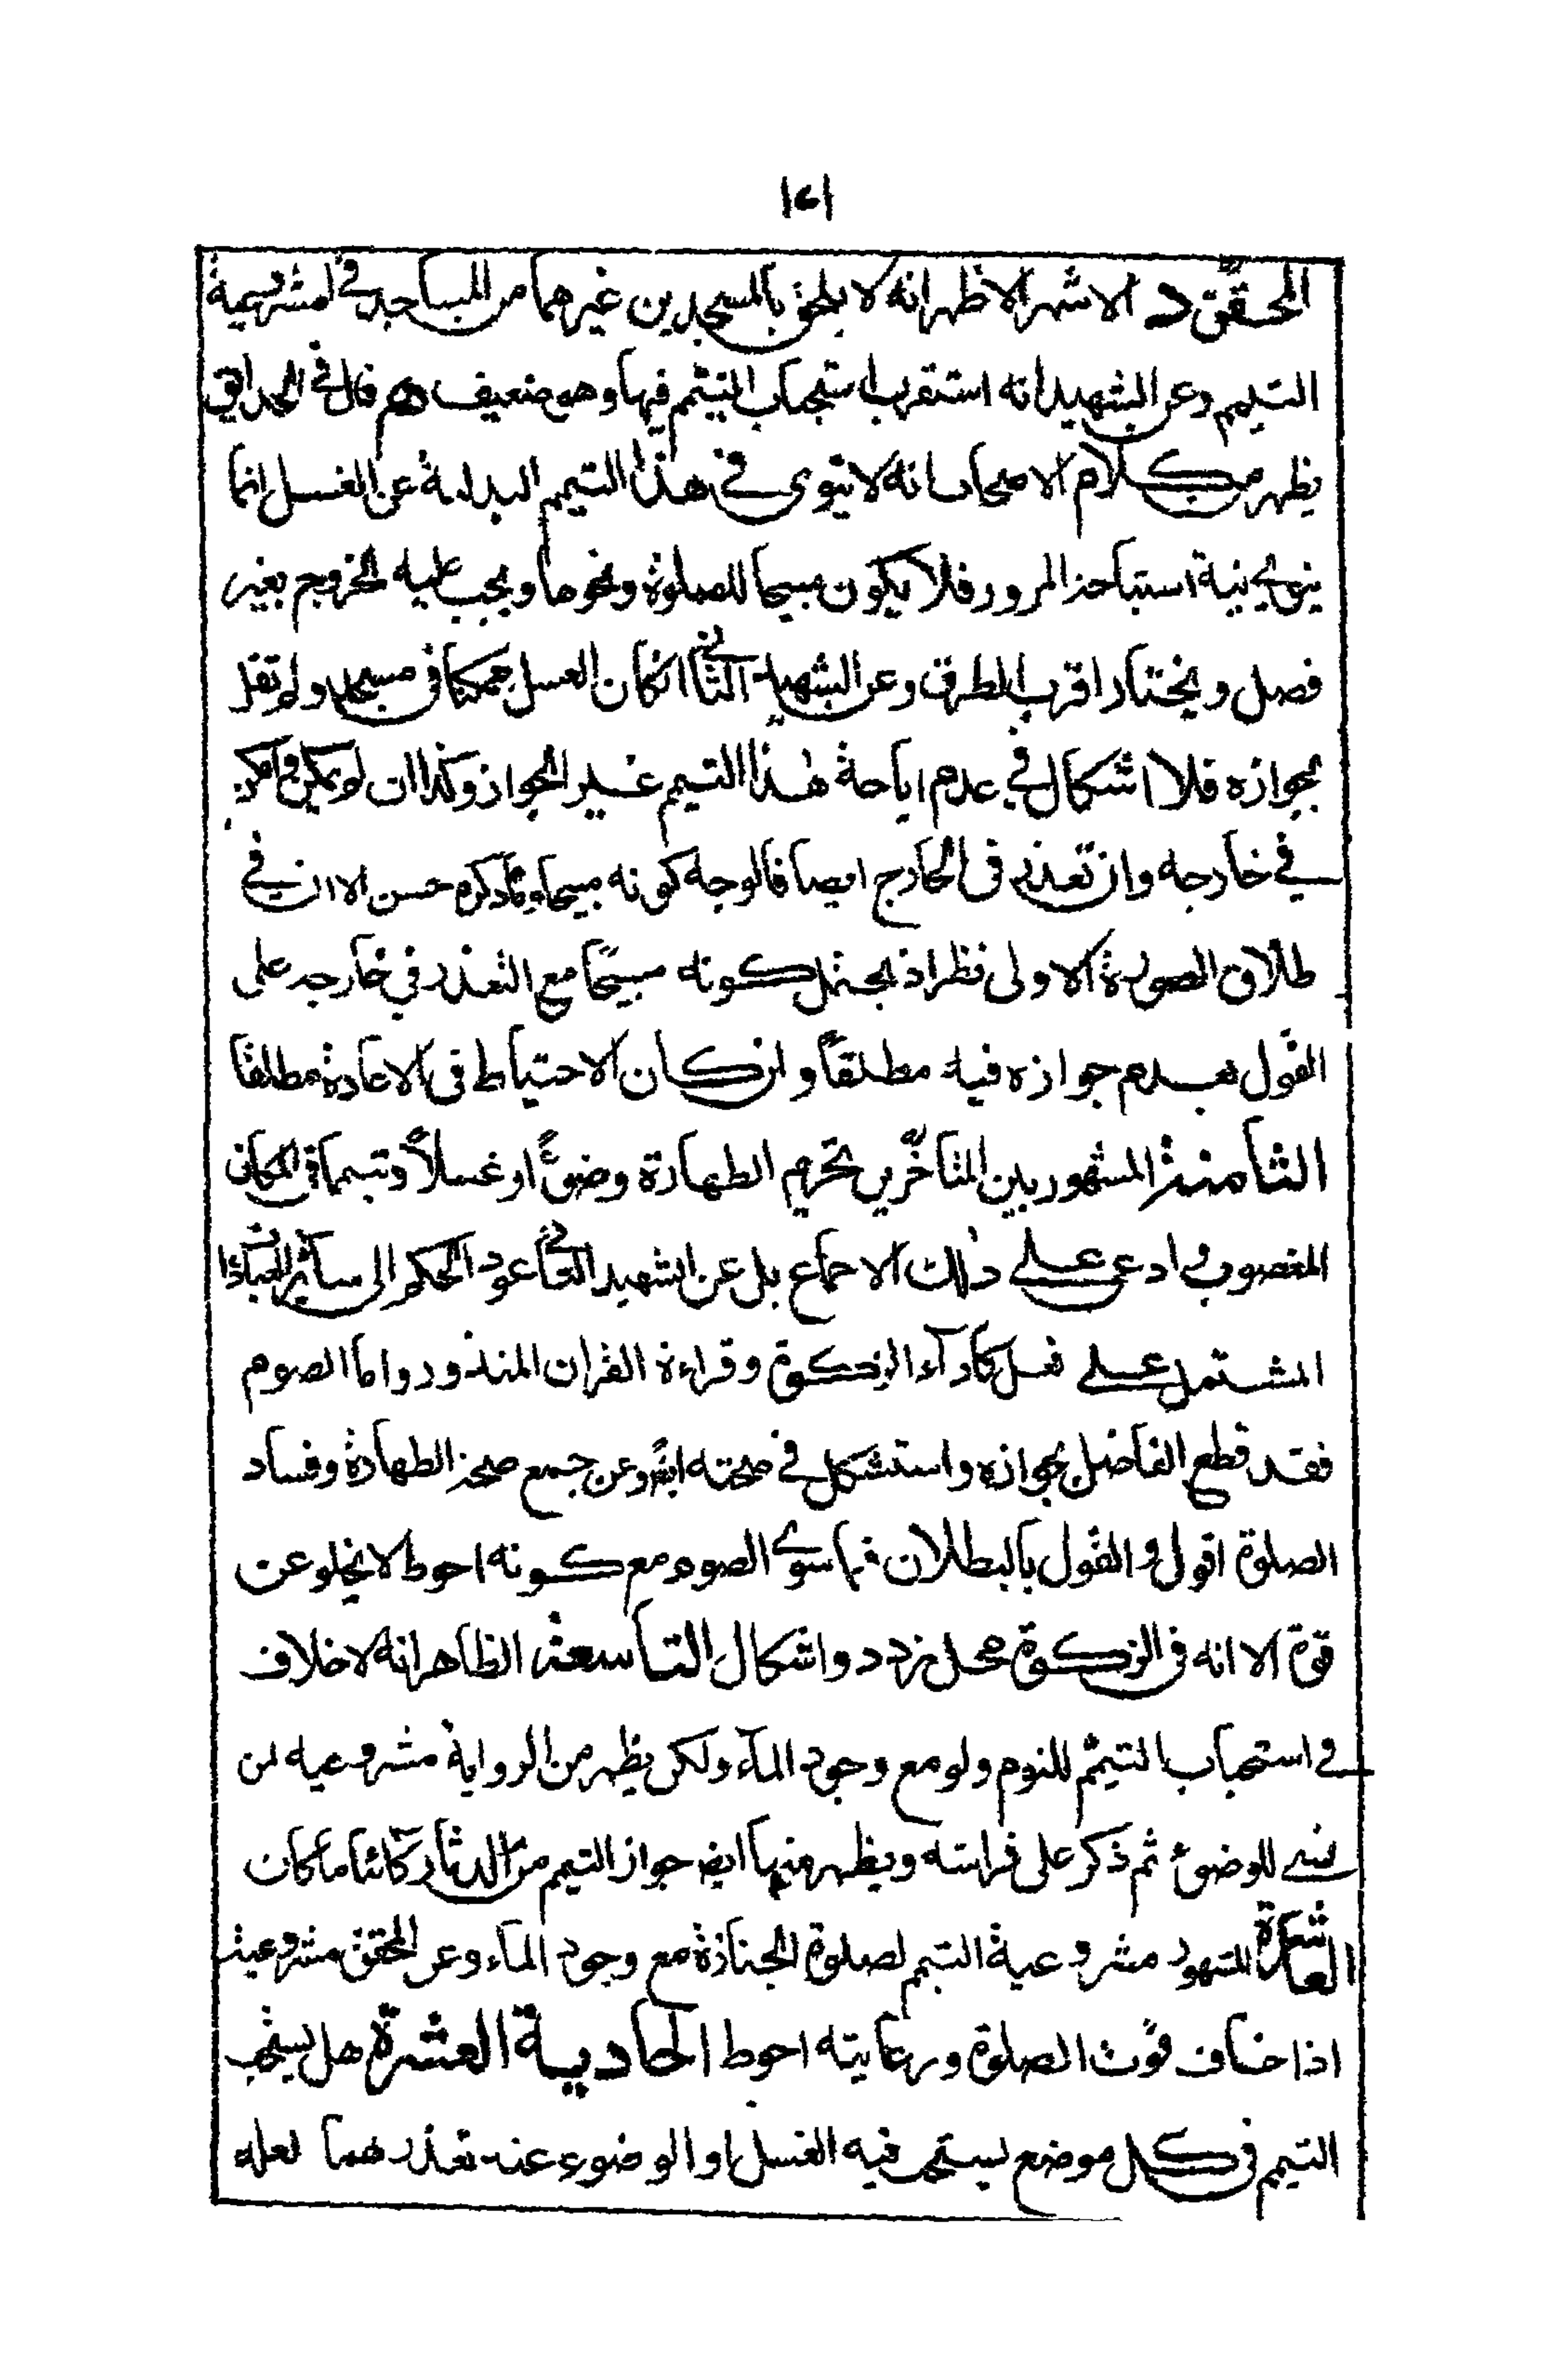 ١٢١
المحقق د الاشهر الاظهر انه لا يلحق بالمسجدين غيرهما من المساجد في مشروعية
التيمم وعن الشهيد انه استقرب استحباب التيمم فيها وهو ضعيف قال في الحدايق
يظهر من كلام الاصحاب انه لا ينوى في هذا التيمم البدلية عن الغسل انما
ينوي بنية استباحة المرور فلا يكون مبيحا للصلوة ونحوها ويجب عليه الخروج بغير
فصل ويختار اقرب الطرق وعن الشهيد الثاني ان كان الغسل ممكنا في مسجد ولم نقل
بجوازه فلا اشكال في عدم اباحة هذا التيمم غير الجواز وكذا ان لم يكن وامكن
في خارجه وان تعذر في الخارج ايضا فالوجه كونه مبيحا وما ذكره حسن الا ان في
طلاق الصورة الاولى نظر اذ يحتمل كونه مبيحًا مع التعذر في خارجه على
القول بعدم جوازه فيه مطلقاً وان كان الاحتياط في الاعادة مطلقا
الثامنة المشهور بين المتأخّرين تحريم الطهارة وضوءً او غسلاً وتيمما في المكان
المغصوب و ادعى على ذلك الاجماع بل عن الشهيد الثاني عود الحكم الى سائر العبادات
المشتمل على فعل كأداء الزكوة وقراءة القران المنذور واما الصوم
فقد قطع الفاضل بجوازه واستشكل في صحته ايضً وعن جمع صحة الطهارة وفساد
الصلوة اقول و القول بالبطلان فيما سوى الصوم مع كونه احوط لا يخلو عن
قوة الا انه في الزكوة محل تردد واشكال التاسعة الظاهر انه لا خلاف
في استحباب التيمّم للنوم ولو مع وجود الماء ولكن يظهر من الرواية مشروعيه لمن
نسى للوضوء ثم ذكر على فراشه ويظهر منها ايض جواز التيمم من الدثار كائنا ما كان
العاشرة المشهور مشروعية التيمم لصلوة الجنازة مع وجود الماء وعن المحقق مشروعيته
اذا خاف فوت الصلوة ورعايته احوط الحادية العشرة هل يستحب
التيمم في كل موضع يستحب فيه الغسل او الوضوء عند تعذرهما لعله